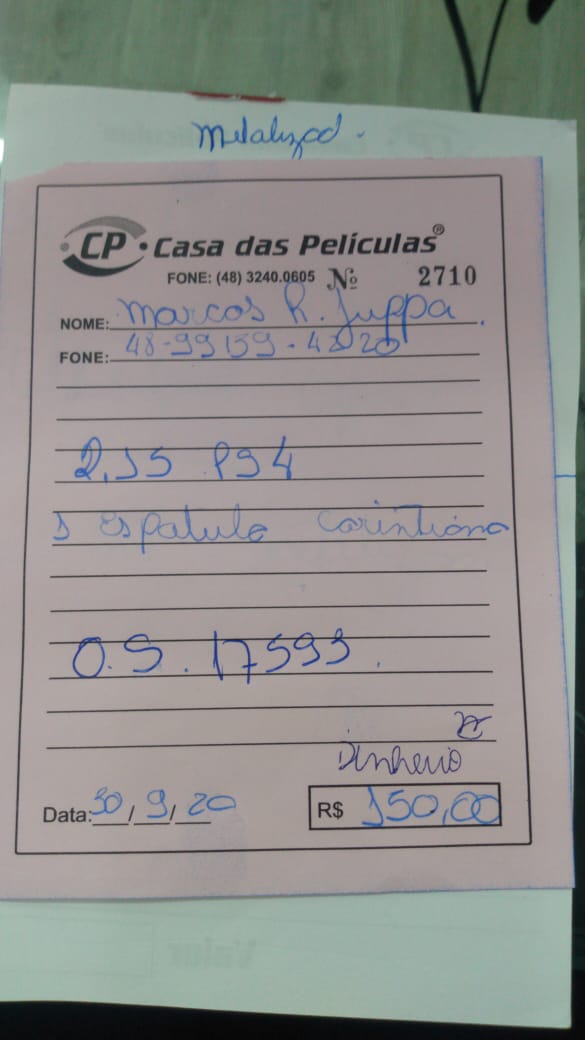 CP • Casa das Películas®
FONE: (48) 3240.0605 Nº 2710
NOME: Marcos R. Juppa.
FONE: 48-99159-4220
2,15 P94
1 espatula corintiana
O.S. 17593.
Dinheiro
Data: 30/9/20 R$ 150,00